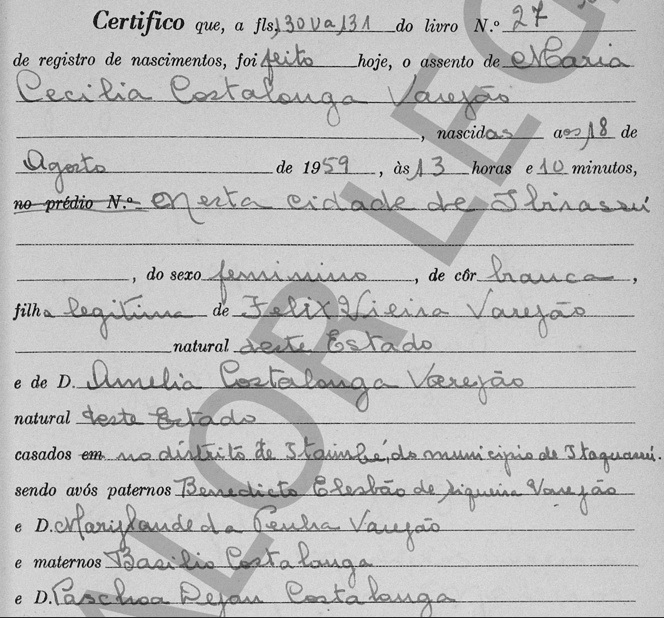 Certifico que, a fls, 130 v a 131 do livro N.º 27
de registro de nascimentos, foi feito hoje, o assento de Maria
Cecilia Costalonga Varejão
, nascida aos 18 de
Agosto de 1959, às 13 horas e 10 minutos,
no prédio N.º Nesta cidade de Ibirassú
, do sexo feminino, de côr branca,
filha legitima de Felix Vieira Varejão
natural deste Estado
e de D. Amelia Costalonga Varejão
natural deste Estado
casados em no distrito de Itaimbé, do municipio de Itaguassú.
sendo avós paternos Benedicto Elesbão de Siqueira Varejão
e D. Marylande da Penha Varejão
e maternos Basilio Costalonga
e D. Paschoa Dejan Costalonga
VALOR LEG